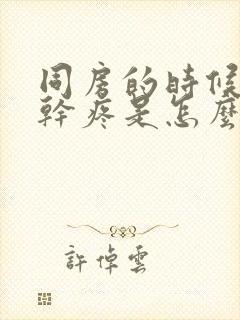 同房的時候
幹疼是怎麼
許倬雲